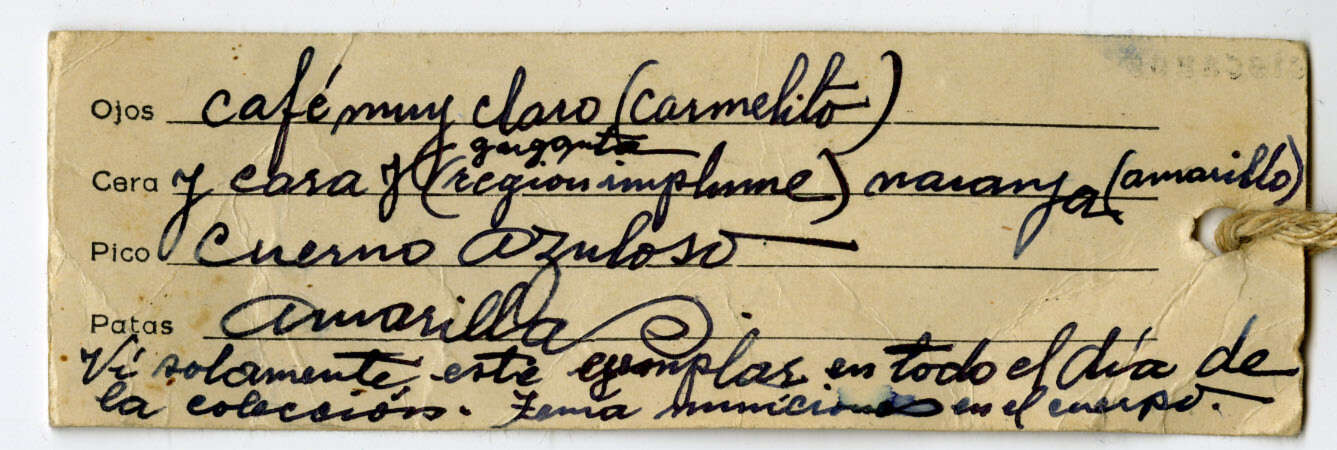 Ojos café muy claro (carmelito)
garganta
Cera y cara y (region implume) naranja (amarillo)
Pico cuerno azuloso
Patas amarilla
Vi solamente este ejemplar en todo el día de
la colección. Tenia municiones en el cuerpo.